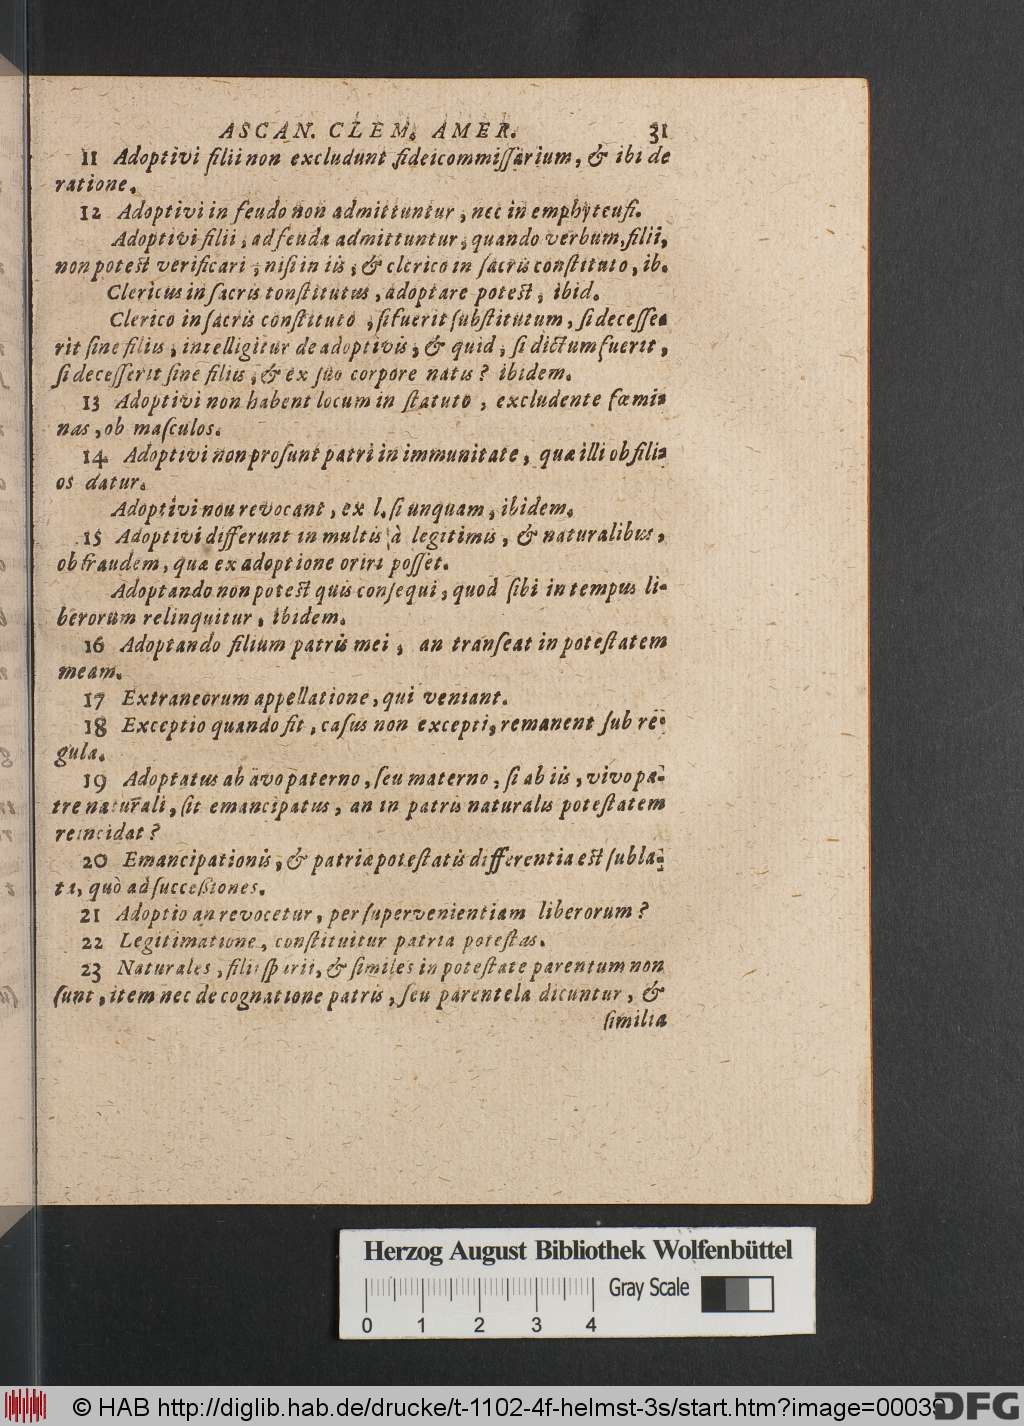 ASCAN. CLEM. AMER. 31
11 Adoptivi filii non excludunt fideicommiſſarium, & ibi de
ratione.
12 Adoptivi in feudo non admittuntur, nec in emphyteuſi.
Adoptivi filii, ad feuda admittuntur, quando verbum, filii,
non poteſt verificari, niſi in iis, & clerico in ſacris conſtituto, ib.
Clericus in ſacris tonſtitutus, adoptare poteſt, ibid.
Clerico in ſacris conſtituto, ſi fuerit ſubſtitutum, ſi deceſſe-
rit ſine filiis, intelligitur de adoptivis, & quid, ſi dictum fuerit,
ſi deceſſerit ſine filiis, & ex ſuo corpore natis? ibidem.
13 Adoptivi non habent locum in ſtatuto, excludente fœmi-
nas, ob maſculos.
14 Adoptivi non proſunt patri in immunitate, quæ illi ob fili-
os datur.
Adoptivi nou revocant, ex l. ſi unquam, ibidem.
15 Adoptivi differunt in multis à legitimis, & naturalibus,
ob fraudem, quæ ex adoptione oriri poſſet.
Adoptando non poteſt quis conſequi, quod ſibi in tempus li-
berorum relinquitur, ibidem.
16 Adoptando filium patris mei, an tranſeat in poteſtatem
meam.
17 Extraneorum appellatione, qui veniant.
18 Exceptio quando fit, caſus non excepti, remanent ſub re-
gula.
19 Adoptatus ab avo paterno, ſeu materno, ſi ab iis, vivo pa-
tre naturali, ſit emancipatus, an in patris naturalis poteſtatem
reincidat?
20 Emancipationis, & patriæ poteſtatis differentia eſt ſubla-
ta, quò ad ſucceßiones.
21 Adoptio an revocetur, per ſupervenientiam liberorum?
22 Legitimatione, conſtituitur patria poteſtas.
23 Naturales, filii ſpurii, & ſimiles in poteſtate parentum non
ſunt, item nec de cognatione patris, ſeu parentela dicuntur, &
ſimilia
Herzog August Bibliothek Wolfenbüttel
Gray Scale
0 1 2 3 4
© HAB http://diglib.hab.de/drucke/t-1102-4f-helmst-3s/start.htm?image=00039
DFG